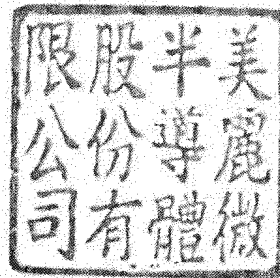 美麗微
半導體
股份有
限公司